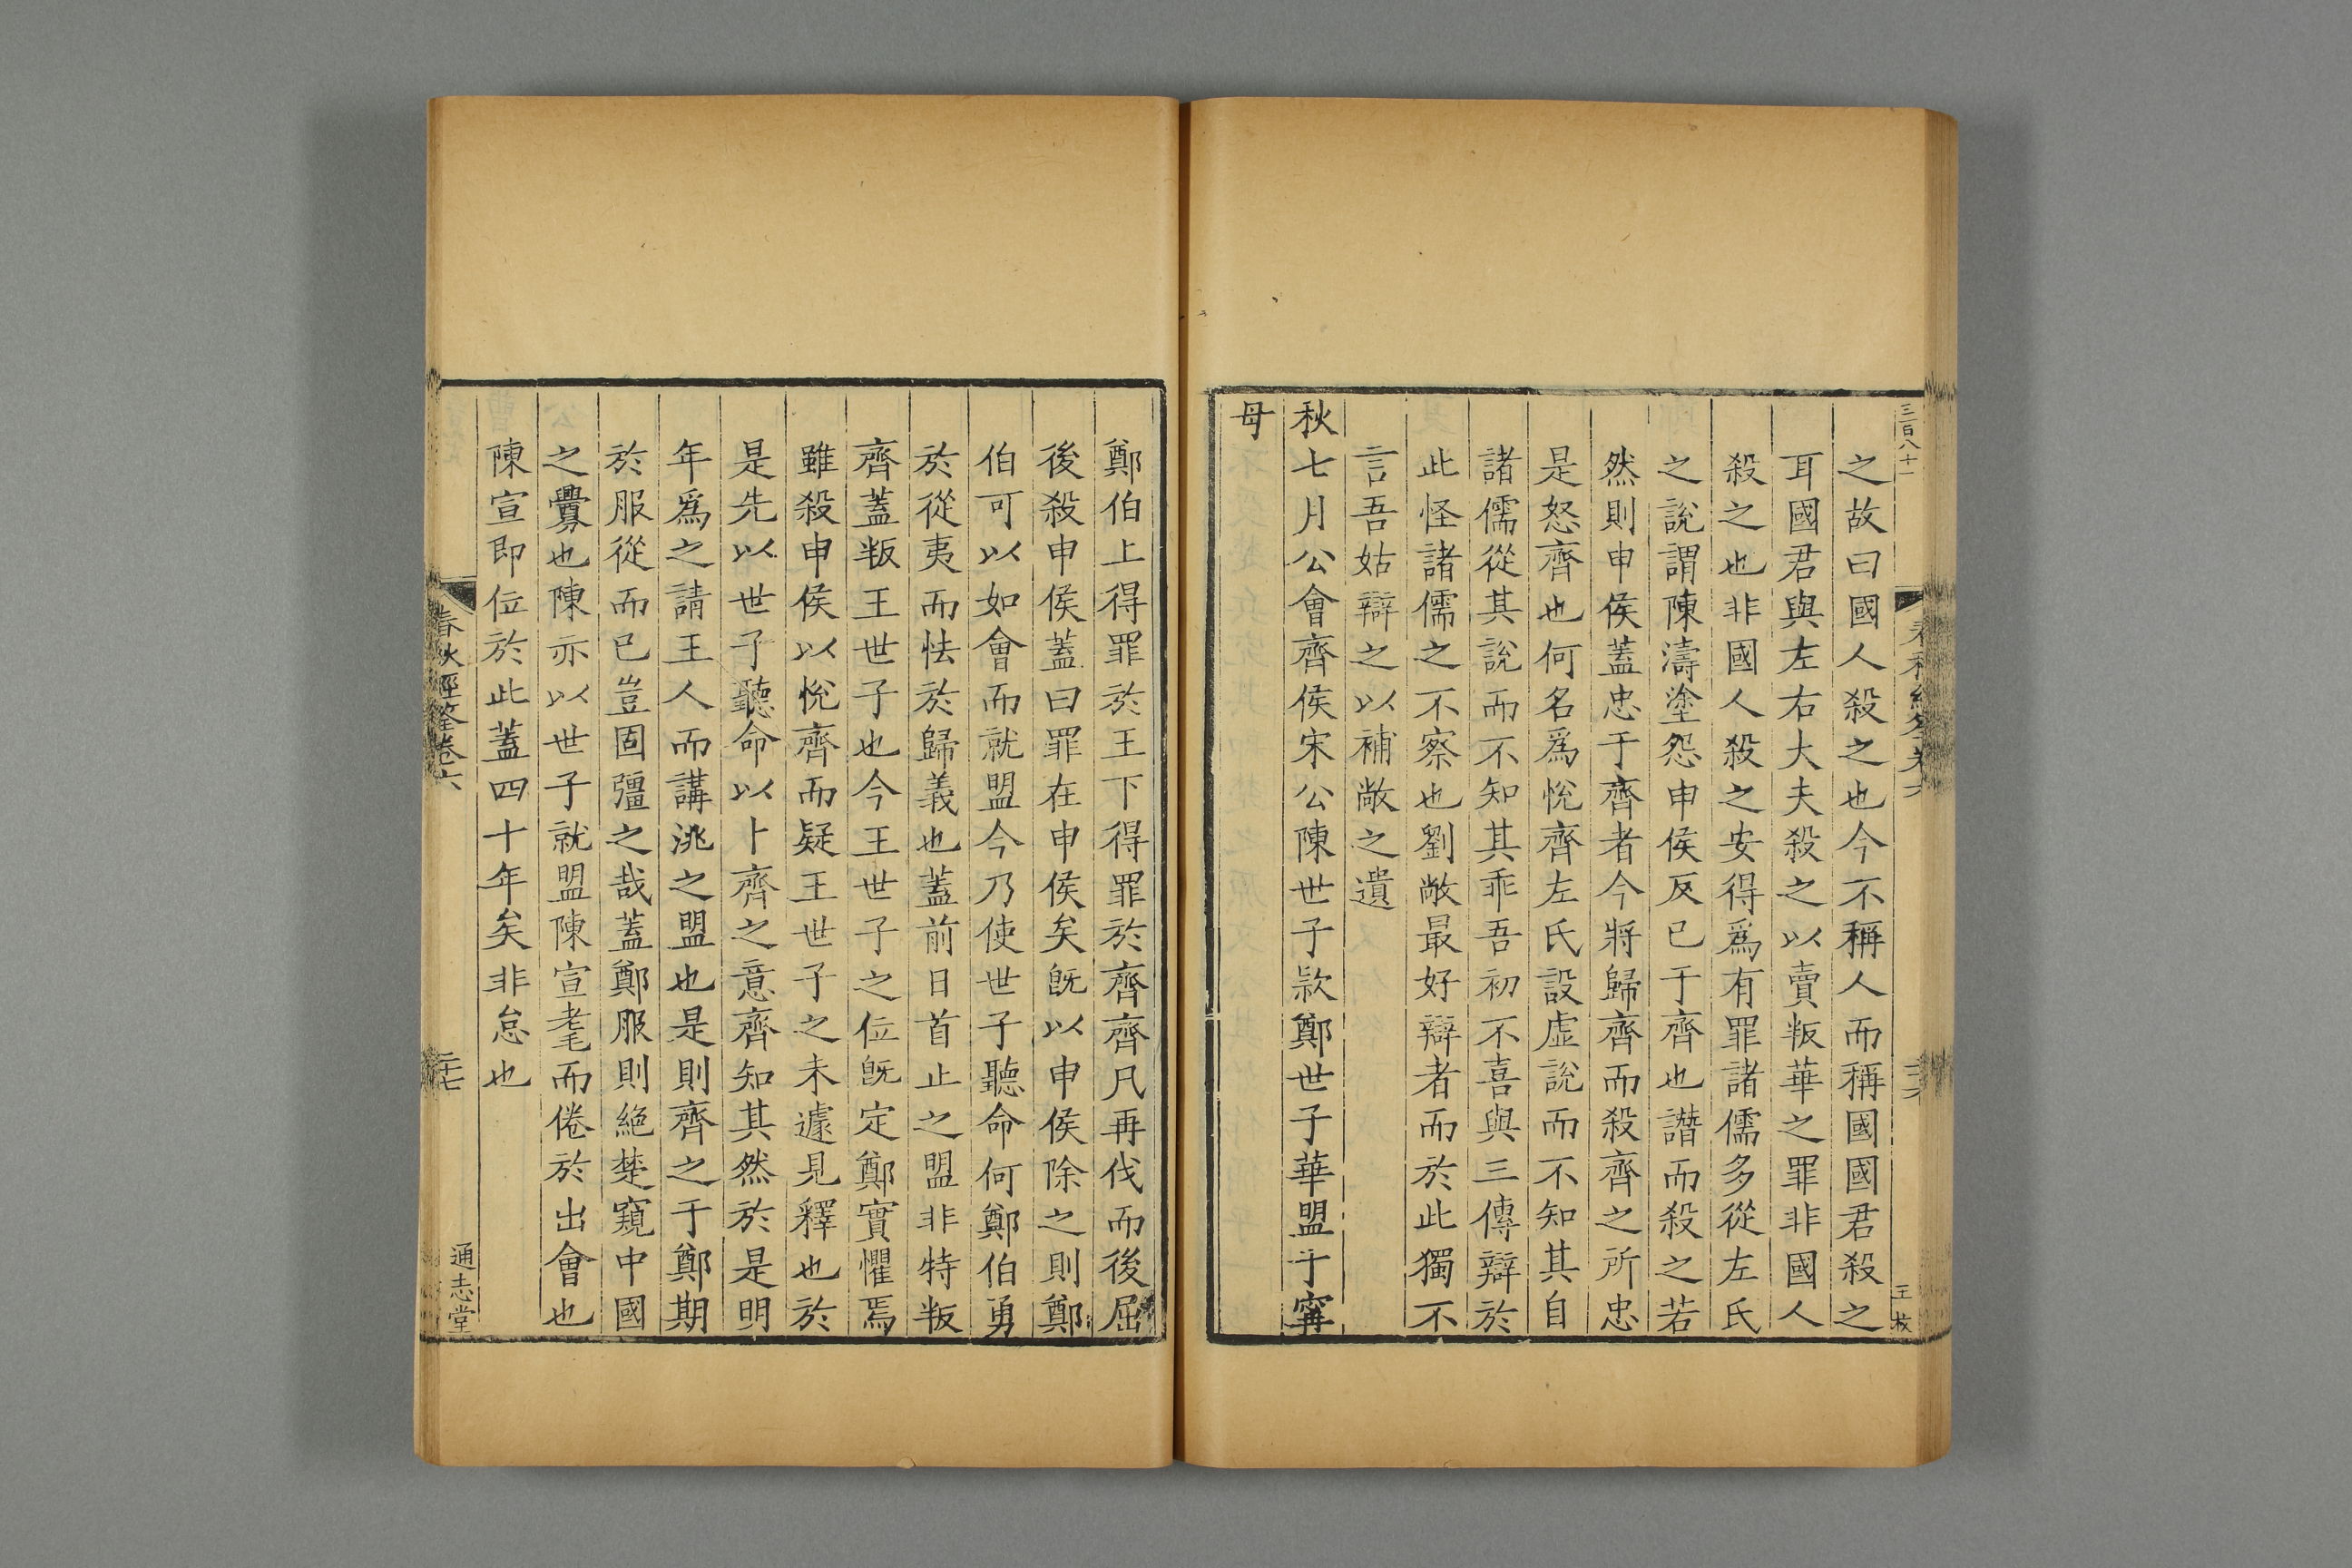 三百八十一
之故曰國人殺之也今不稱人而稱國國君殺之
耳國君與左右大夫殺之以賣叛華之罪非國人
殺之也非國人殺之安得爲有罪諸儒多從左氏
之說謂陳濤塗怨申侯反已于齊也譖而殺之若
然則申侯蓋忠于齊者今將歸齊而殺齊之所忠
是怒齊也何名爲悅齊左氏設虛說而不知其自
諸儒從其說而不知其乖吾初不喜與三傳辯於
此怪諸儒之不察也劉敞最好辯者而於此獨不
言吾姑辯之以補敞之遺
秋七月公會齊侯宋公陳世子款鄭世子華盟于甯
母
鄭伯上得罪於王下得罪於齊齊凡再伐而後屈
後殺申侯蓋曰罪在申侯矣既以申侯除之則鄭
伯可以如會而就盟今乃使世子聽命何鄭伯勇
於從夷而怯於歸義也蓋前日首止之盟非特叛
齊蓋叛王世子也今王世子之位既定鄭實懼焉
雖殺申侯以悅齊而疑王世子之未遽見釋也於
是先以世子聽命以卜齊之意齊知其然於是明
年爲之請王人而講洮之盟也是則齊之于鄭期
於服從而已豈固彊之哉蓋鄭服則絕楚窺中國
之釁也陳亦以世子就盟陳宣耄而倦於出會也
陳宣即位於此蓋四十年矣非怠也
春秋經筌卷六
二十七
通志堂